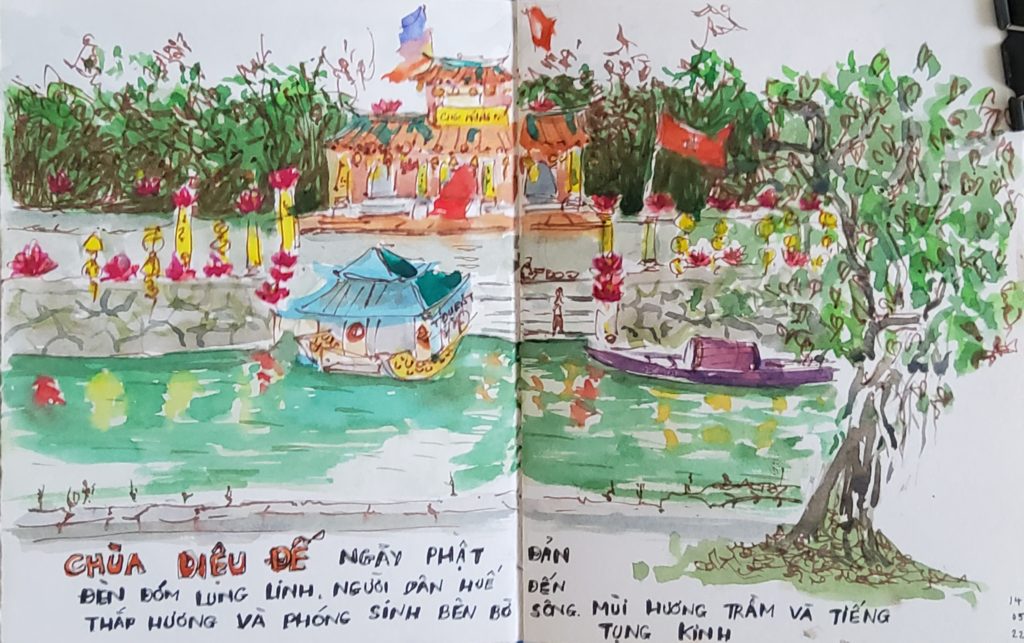 CHÙA DIỆU ĐẾ NGÀY PHẬT ĐẢN
ĐÈN ĐỐM LUNG LINH. NGƯỜI DÂN HUẾ ĐẾN
THẮP HƯƠNG VÀ PHÓNG SINH BÊN BỜ SÔNG. MÙI HƯƠNG TRẦM VÀ TIẾNG
TỤNG KINH
14
05
22